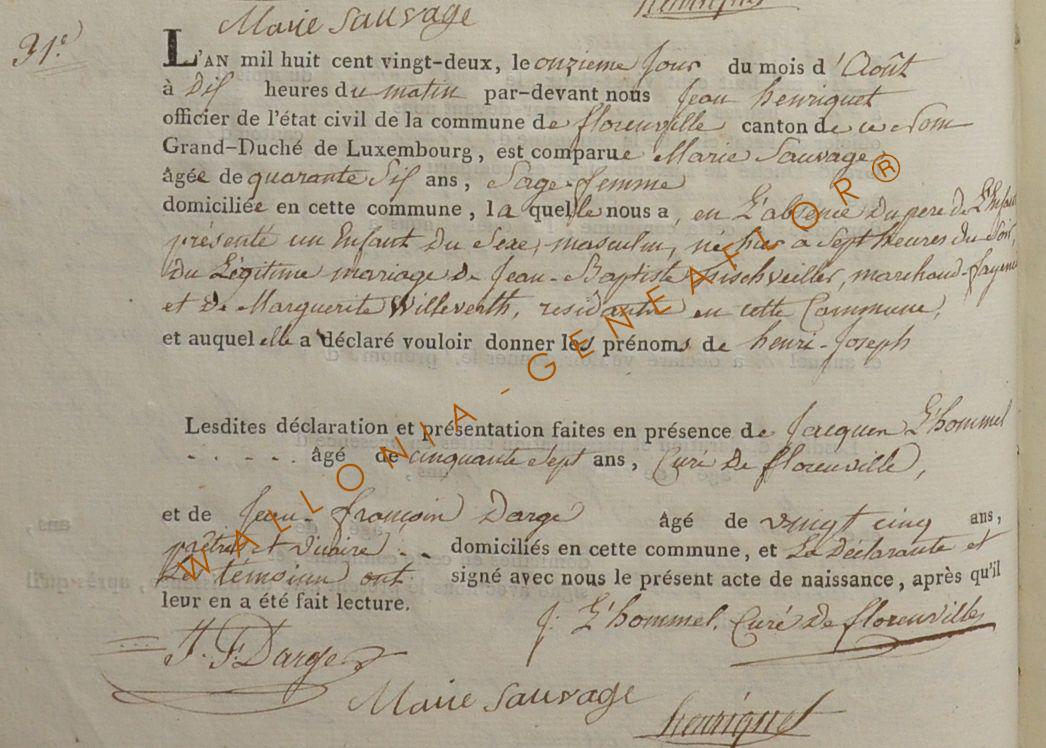 Marie Sauvage
henriquet
31e.
L'AN mil huit cent vingt-deux, le onzieme jour du mois d'Août
à Dix heures du matin par-devant nous Jean henriquet
officier de l'état civil de la commune de florenville canton de ce Nom
Grand-Duché de Luxembourg, est comparue Marie Sauvage,
âgée de quarante Six ans, Sage-femme
domiciliée en cette commune, la quelle nous a, en L'absence Du pere De L'Enfant
présenté un Enfant Du Sexe masculin, né hier a Sept heures Du Soir,
Du Légitime mariage De Jean-Baptiste fischveiller, marchand-fayen
et De Marguerite Willeverth, residante en cette Commune,
et auquel elle a déclaré vouloir donner les prénoms de henri-Joseph
Lesdites déclaration et présentation faites en présence de Jacques L'hommel
âgé de cinquante Sept ans, Curé De florenville,
et de Jean-françois Darge âgé de vingt cinq ans,
prêtre et vicaire domiciliés en cette commune, et La Déclarante et
Les témoins ont signé avec nous le présent acte de naissance, après qu'il
leur en a été fait lecture.
J. L'hommel. Curé De florenville
J. F. Darge
Marie Sauvage
henriquet
WALLONIA-GENEAFLOR®